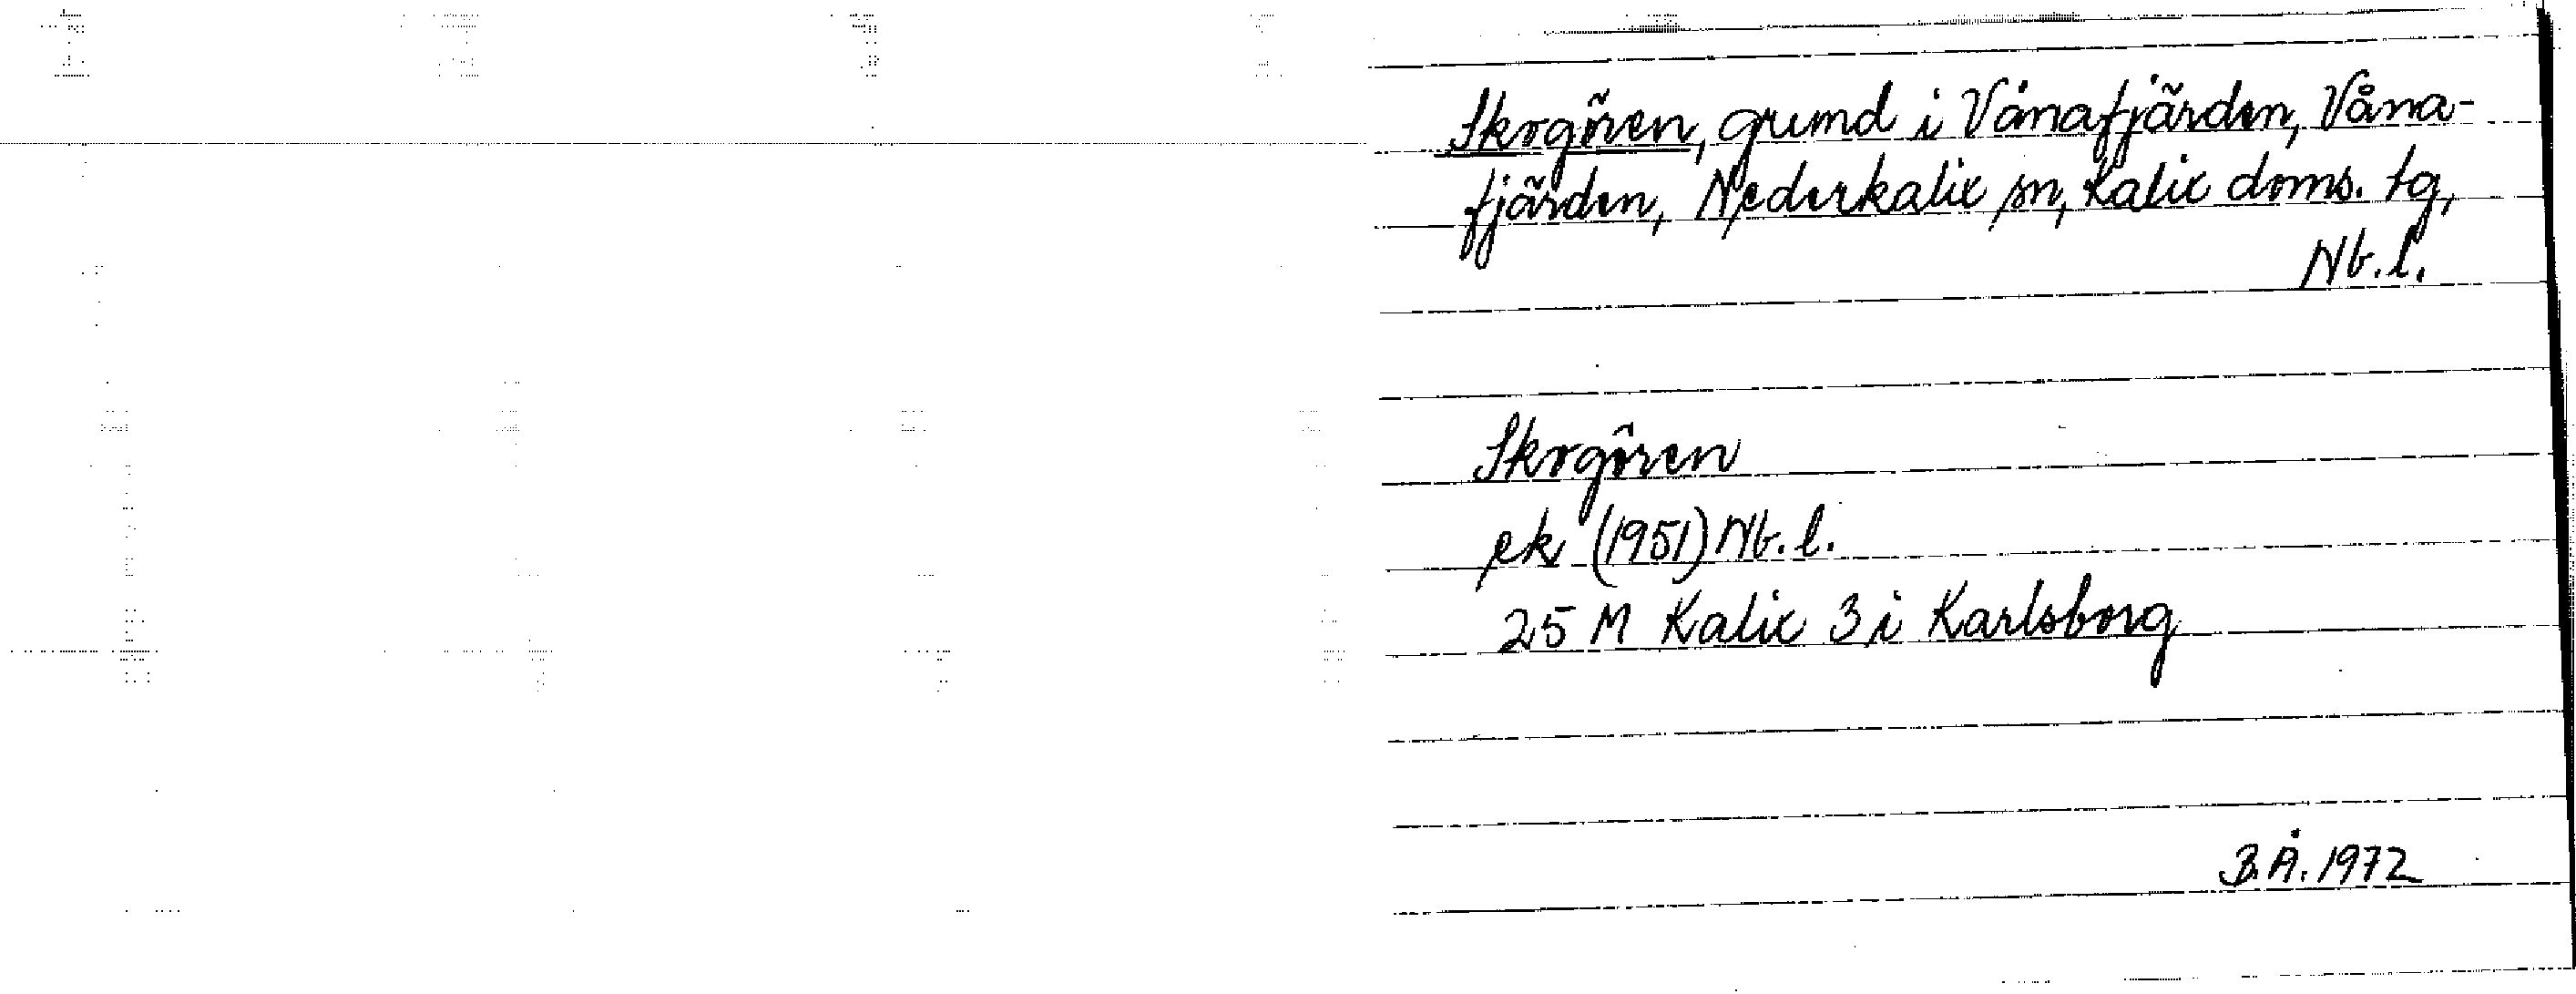 Skrgören, grund i Vånafjärden, Våna-
fjärden, Nederkalix sn, Kalix doms. tg,
Nb.l.
Skrgören
ek (1951) Nb.l.
25 M Kalix 3 i Karlsborg
B.Å. 1972